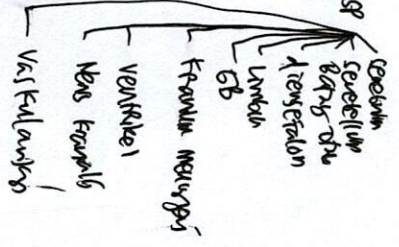 SP
cerebrum
serebellum
Batang otak
diensefalon
Limbik
GB
Kranium meninges
ventrikel
Nerv kranialis
Vaskularisasi